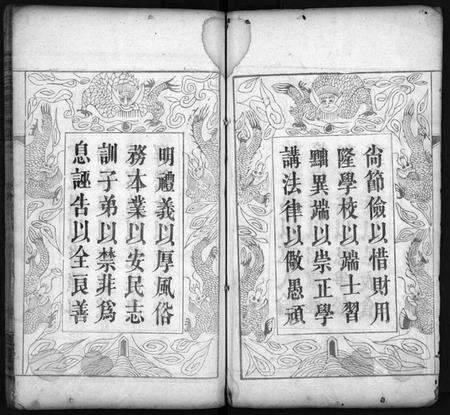 尙節儉以惜財用
隆學校以端士習
黜異端以崇正學
講法律以儆愚頑
明禮義以厚風俗
務本業以安民志
訓子弟以禁非爲
息誣告以全良善